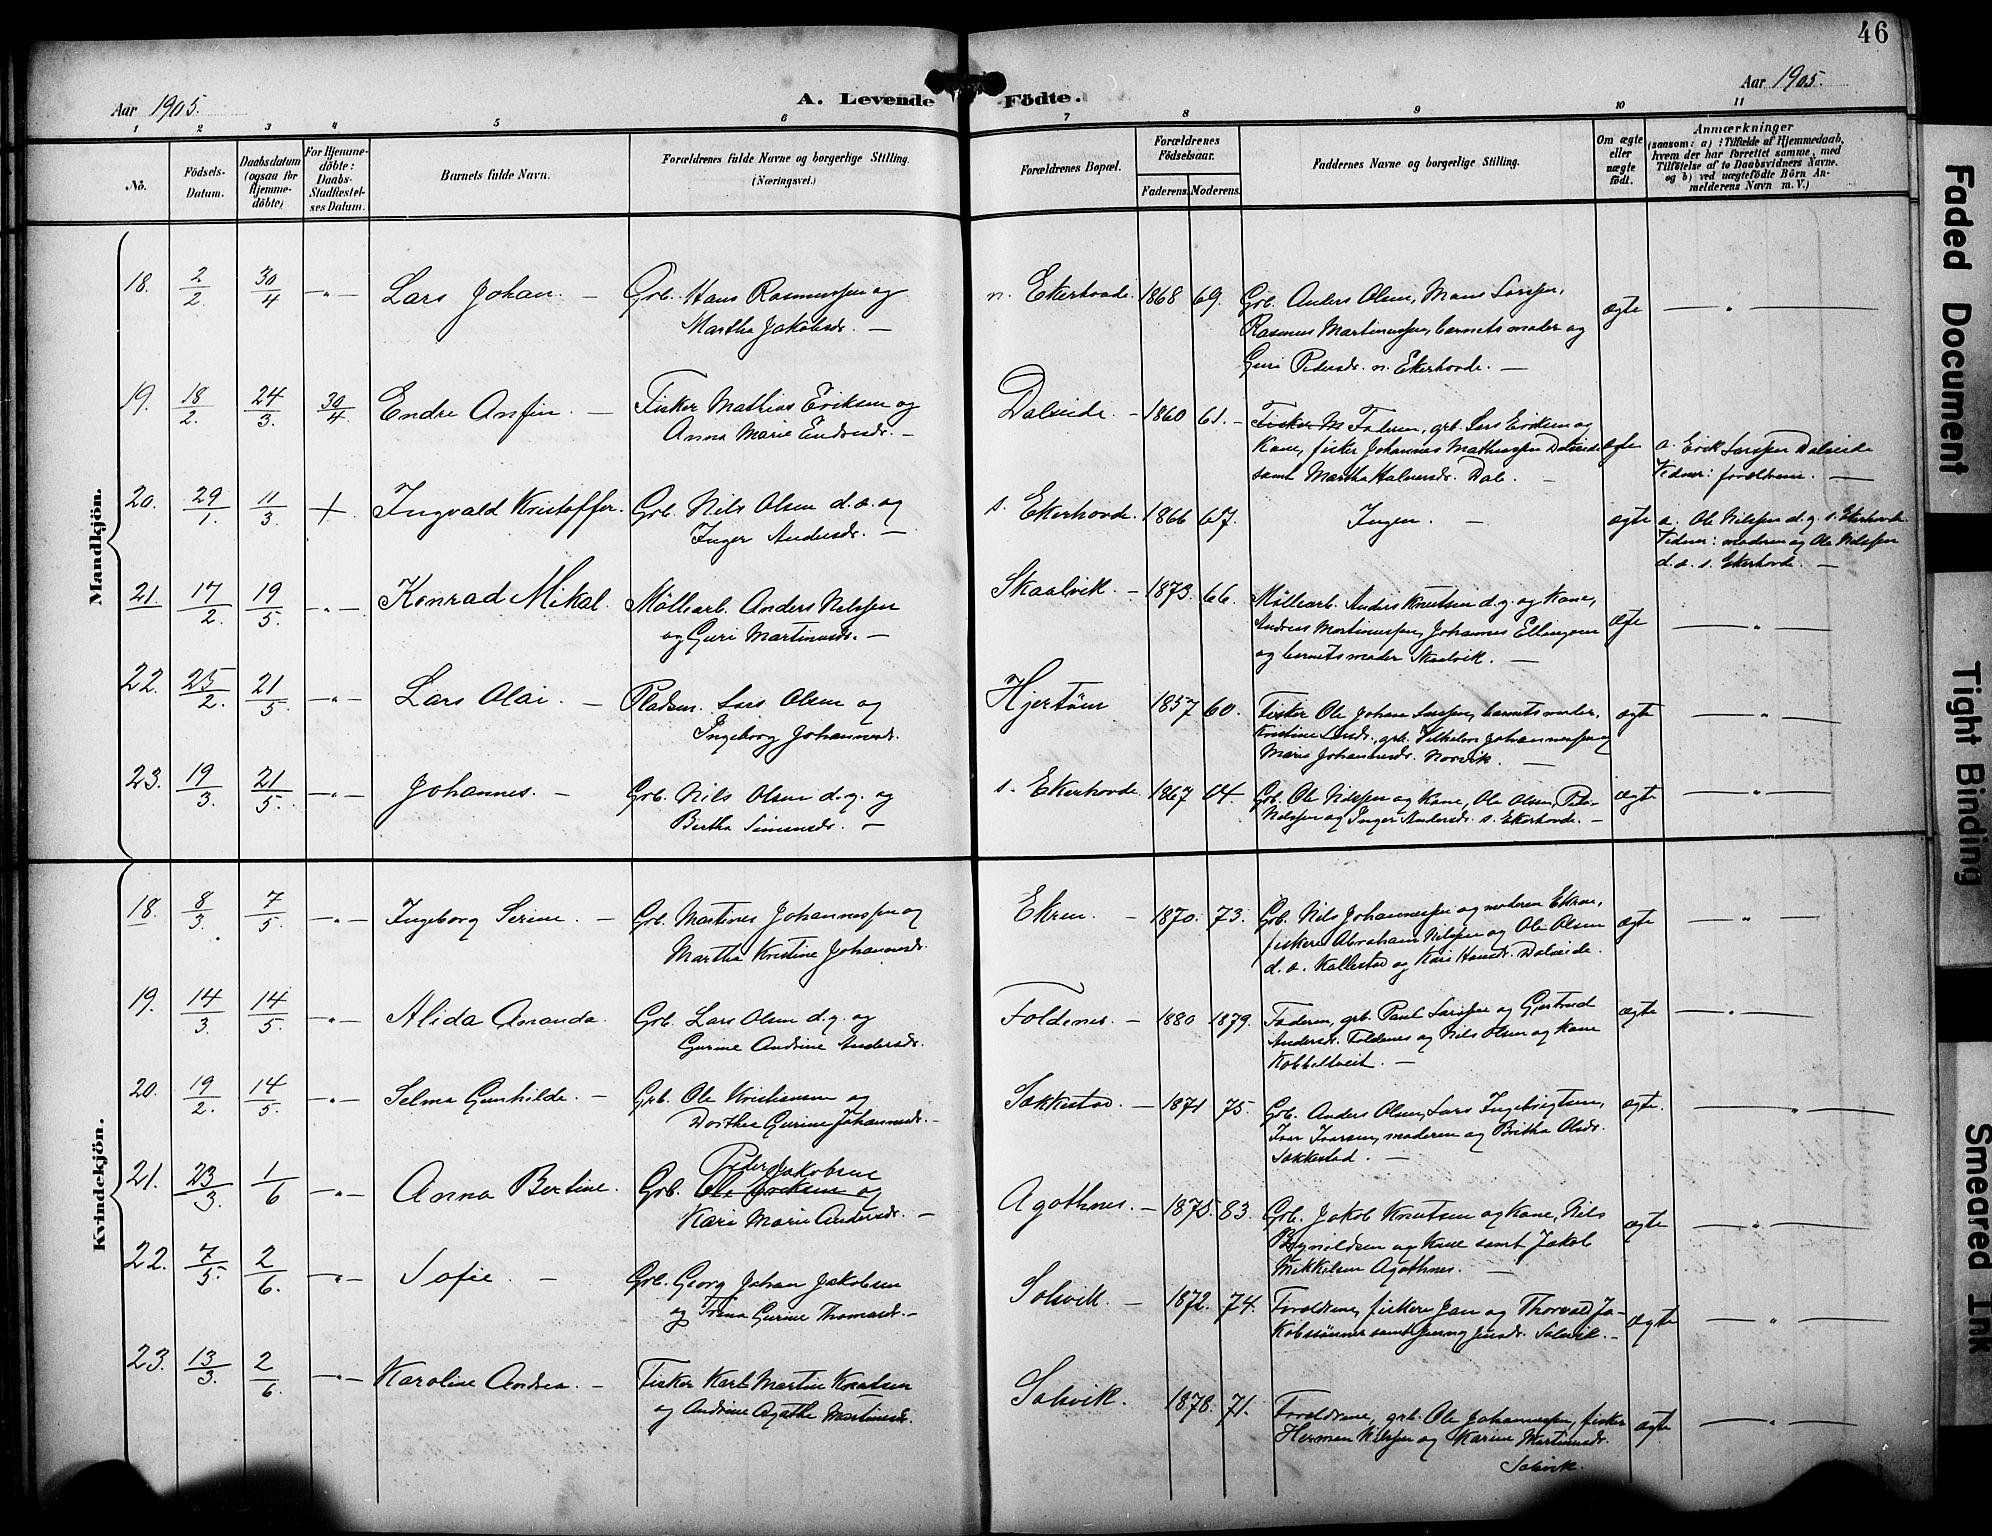 46
Aar 1905.
A. Levende Födte.
Aar 1905.
1 2 3 4 5 6 7 8 9 10 11
No.
Födsels-Datum.
Daabsdatum (ogsaa for Hjemme-döbte)
For Hjemme-döbte: Daabs-Stadfæstel-ses Datum.
Barnets fulde Navn.
Forældrenes fulde Navne og borgerlige Stilling. (Næringsvei.)
Forældrenes Bopæl.
Forældrenes Födselsaar.
Faderens. Moderens.
Faddernes Navne og borgerlige Stilling.
Om ægte eller uægte födt.
Anmærkninger
(saasom: a) i Tilfælde af Hjemmedaab,
hvem der har forrettet samme, med
Tilföielse af to Daabsvidners Navne.
og b) ved uægtefödte Börn An-
melderens Navn m. V.)
Mandkjön.
18. 2/2. 30/4 -„- Lars Johan. - Grb. Hans Rasmussen og
Martha Jakobsdr. -
n. Ekerhovde. 1868 69. Grb. Anders Olsen, Mons Larssen,
Rasmus Martinussen, barnets moder og
Guri Pedersdr. n. Ekerhovde. -
ægte - „ -
19. 18/2. 24/3. 30/4 Endre Anfin. - Fisker Mathias Eriksen og
Anna Marie Endresdr. -
Dalseide. - 1860 61. - Fisker M Faderen, grb. Lars Eriksen og
Kone, fisker Johannes Mathiassen Dalseide
samt Martha Halvorsdr. Dale. -
ægte a. Erik Larssen Dalseide
Vidner: forældrene. -
20. 29/1. 11/3. + Ingvald Kristoffer. Grb. Nils Olsen d. æ. og
Inger Andersdr. -
s. Ekerhovde. 1866 67. Ingen. -
ægte a. Ole Nilssen d. y. s. Ekerhovde.
Vidner: moderen og Ole Nilssen
d. æ. s. Ekerhovde. -
21. 17/2. 19/5. -„- Konrad Mikal. Møllearb. Anders Nilssen
og Guri Martinusdr. -
Skaalvik. - 1873. 66. Møllearb. Anders Knutsen d. y. og Kone,
Andreas Martinussen, Johannes Ellingsen
og barnets moder Skaalvik. -
ægte - „ -
22. 25/2. 21/5. -„- Lars Olai. - Pladsm. Lars Olsen og
Ingeborg Johannesdr.
Hjertøen 1857 60. Fisker Ole Johan Larssen, barnets moder,
Kristine Larsdr., grb. Vilhelm Johannessen og
Marie Johannesdr. Norvik. -
ægte - „ -
23. 19/3. 21/5. -„- Johannes. - Grb. Nils Olsen d. y. og
Bertha Simonsdr. -
s. Ekerhovde 1867 64. Grb. Ole Nilssen og Kone, Ole Olsen, Peder
Nilssen og Inger Andersdr. s. Ekerhovde. -
ægte - „ -
Kvindekjön.
18. 8/3. 7/5. -„- Ingeborg Serine. - Grb. Martines Johannessen og
Martha Kristine Johannesdr.
Ekren. - 1870. 73. Grb. Nils Johannessen og moderen Ekren,
fiskere Abraham Nilssen og Ole Olsen
d. æ. Kallestad og Kari Hansdr. Dalseide.
ægte - „ -
19. 14/3. 14/5. -„- Alida Amanda. Grb. Lars Olsen d. y. og
Gurine Andrine Andersdr.
Foldenes. - 1880 1879. Faderen, grb. Paul Larssen og Gjertrud
Andersdr. Foldenes og Nils Olsen og Kone
Kobbeltveit. -
ægte - „ -
20. 19/2. 14/5. -„- Selma Gunhilde. - Grb. Ole Kristiansen og
Dorthea Gurine Johannesdr. -
Sekkestad. - 1871 75. Grb. Anders Olsen, Lars Ingebrigtsen,
Ivar Ivarsen, moderen og Britha Olsdr.
Sekkestad. -
ægte. - „ -
21. 23/3. 1/6 -„- Anna Bertine. Peder Jakobsen
Grb. Ole Eriksen og
Kari Marie Andersdr. -
Agothnes. - 1875. 83. Grb. Jakob Knutsen og Kone, Nils
Brynildsen og Kone samt Jakob
Mikkelsen Agothnes. -
ægte - „ -
22. 7/5. 2/6. -„- Sofie. - Grb. Georg Johan Jakobsen
og Trina Gurine Thomasdr. -
Solsvik. - 1872. 74. Forældrene, fiskere Jan og Thorvald Ja-
kobssønner samt Jensdr. Solsvik. -
ægte - „ -
23. 13/3. 2/6. -„- Karoline Andrea. - Fisker Karl Martin Knutsen
og Andrine Agathe Martinusdr.
Solsvik. 1878. 71. Forældrene, grb. Ole Johannessen, fisker
Herman Nilssen og Karine Martinusdr.
Solsvik.
ægte - „ -
Faded Document
Tight Binding
Smeared Ink